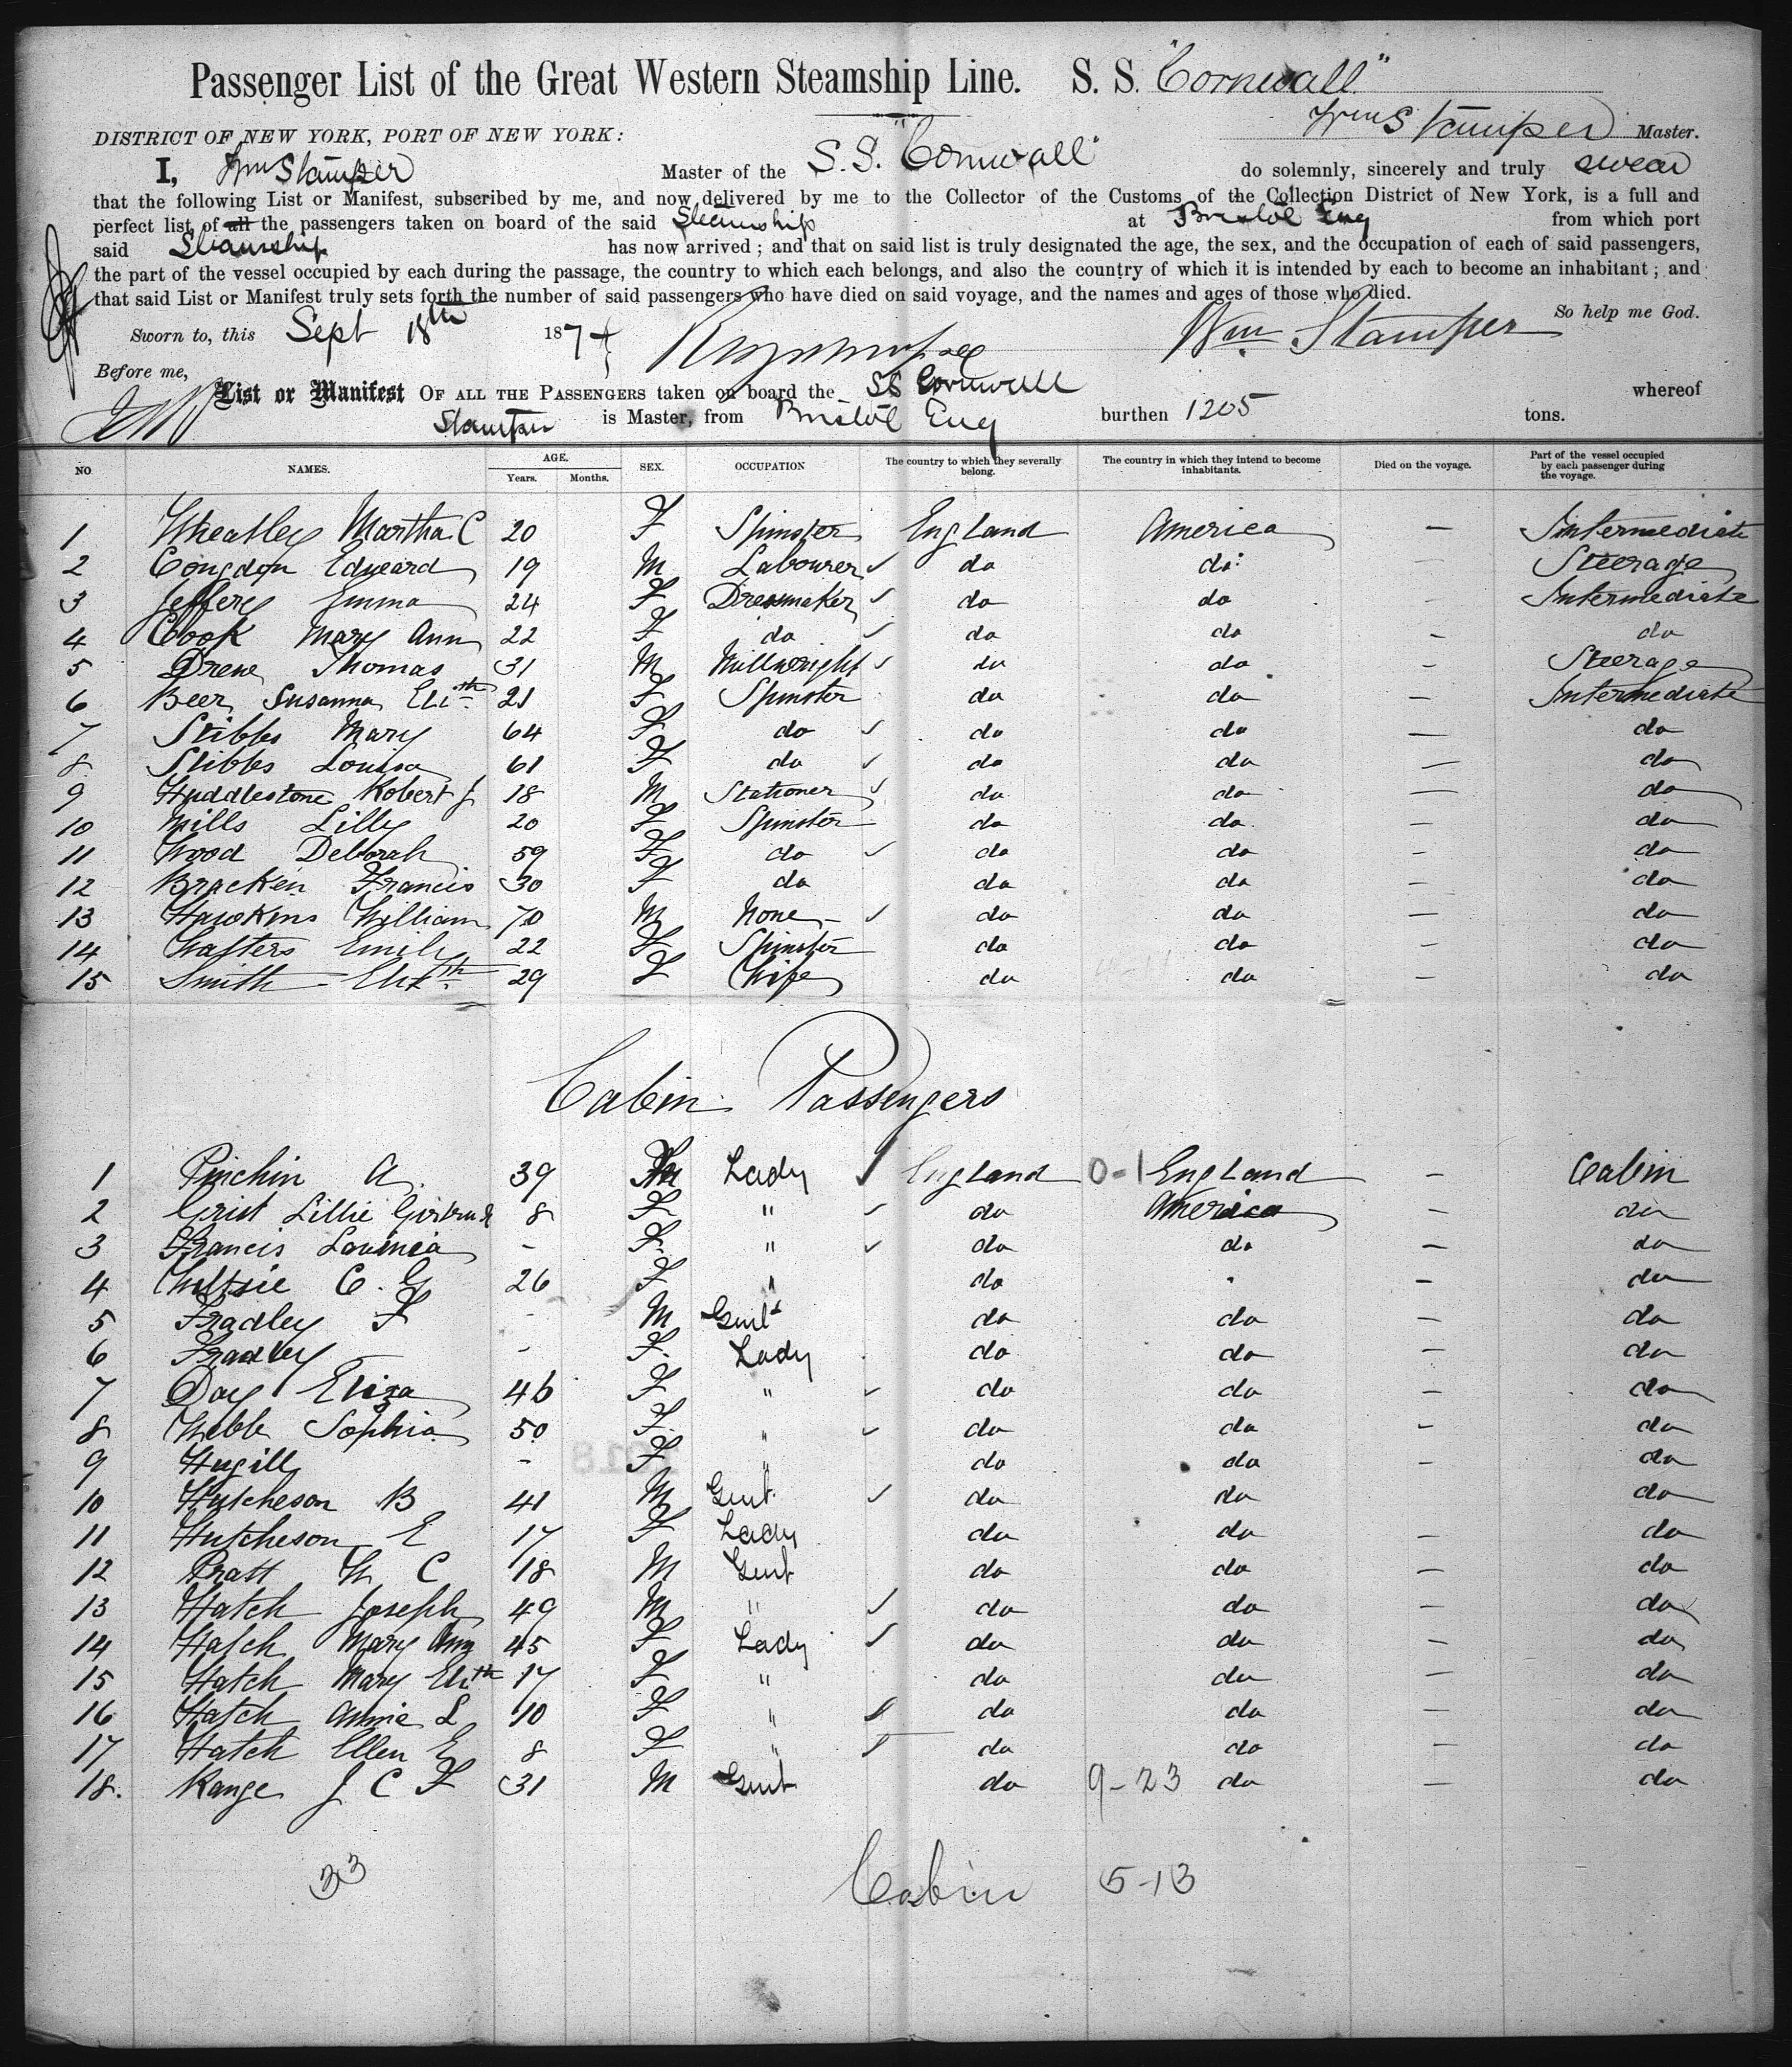 Passenger List of the Great Western Steamship Line. S. S. "Cornwall"
Wm Stamper Master.
DISTRICT OF NEW YORK, PORT OF NEW YORK:
I, Wm Stamper Master of the S.S. "Cornwall" do solemnly, sincerely and truly swear
that the following List or Manifest, subscribed by me, and now delivered by me to the Collector of the Customs of the Collection District of New York, is a full and
perfect list of all the passengers taken on board of the said Steamship at Bristol Eng from which port
said Steamship has now arrived; and that on said list is truly designated the age, the sex, and the occupation of each of said passengers,
the part of the vessel occupied by each during the passage, the country to which each belongs, and also the country of which it is intended by each to become an inhabitant; and
that said List or Manifest truly sets forth the number of said passengers who have died on said voyage, and the names and ages of those who died.
So help me God.
Sworn to, this Sept 18th 1874 Wm Stamper
Before me,
List or Manifest OF ALL THE PASSENGERS taken on board the SS Cornwall whereof
Stamper is Master, from Bristol Eng burthen 1205 tons.
NO. NAMES. AGE. Years. Months. SEX. OCCUPATION The country to which they severally belong. The country in which they intend to become inhabitants. Died on the voyage. Part of the vessel occupied by each passenger during the voyage.
1 Wheatley Martha C 20 F Spinster England America — Intermediate
2 Congdon Edward 19 M Labourer do do — Steerage
3 Jeffery Emma 24 F Dressmaker do do — Intermediate
4 Cook Mary Ann 22 F do do do — do
5 Drew Thomas 31 M Millwright do do — Steerage
6 Beer Susanna Elith 21 F Spinster do do — Intermediate
7 Stibbs Mary 64 F do do do — do
8 Stibbs Louisa 61 F do do do — do
9 Huddlestone Robert J 18 M Stationer do do — do
10 Mills Lilly 20 F Spinster do do — do
11 Wood Deborah 59 F do do do — do
12 Bracken Francis 30 F do do do — do
13 Hawkins William 70 M None do do — do
14 Walters Emily 22 F Spinster do do — do
15 Smith Elizth 29 F Wife do do — do
Cabin Passengers
1 Pinchin A. 39 Lady England 0-1 England — Cabin
2 Grist Lillie 8 F " do America — do
3 Francis Lavinia - F. " do do — do
4 C. G 26 F " do " — do
5 Fradley F - M Gent do do — do
6 Fradley - F. Lady do do — do
7 Day Eliza 46 F " do do — do
8 Webb Sophia 50 F. " do do — do
9 Hugill - F " do do — do
10 Hutcheson B 41 M Gent do do do
11 Hutcheson E 17 F Lady do do — do
12 Pratt W C 18 M Gent do do — do
13 Hatch Joseph 49 M " do do — do
14 Hatch Mary Ann 45 F Lady do do — do
15 Hatch Mary Elith 17 F " do do — do
16 Hatch Annie L 10 F " do do — do
17 Hatch Ellen E 8 F " do do — do
18. Range J C F 31 M Gent do 9-23 do — do
33 Cabin 5-13